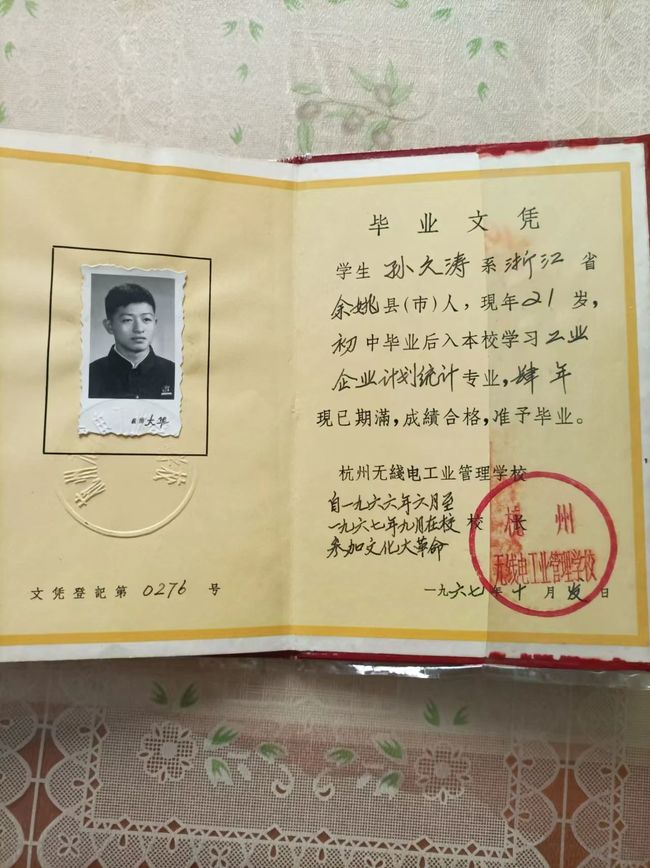 杭州大华
文凭登记第 0276 号
毕业文凭
学生 孙久涛 系 浙江 省
余姚县(市)人，现年 21 岁，
初中毕业后入本校学习 工业
企业计划统计 专业，肆年
現已期滿，成績合格，准予毕业。
杭州无綫电工业管理学校
自一九六六年六月至
一九六七年九月在校
参加文化大革命
校长
杭州
无线电工业管理学校
一九六七年十月发日